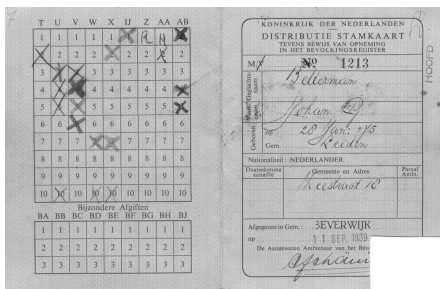 T U V W X IJ Z AA AB
1 1 1 1 1 R N
2 2 2 2
3 3 3 3 3 3 3
4 4 4 4 4 4 4 4
5 5 5 5 5 5 5
6 6 6 6 6 6 6 6
7 7 7 7 7 7 7
8 8 8 8 8 8 8 8 8
9 9 9 9 9 9 9 9 9
10 10 10 10 10 10 10 10 10
Bijzondere Afgiften
BA BB BC BD BE BF BG BH BJ
1 1 1 1 1 1 1 1 1
2 2 2 2 2 2 2 2 2
3 3 3 3 3 3 3 3 3
KONINKRIJK DER NEDERLANDEN
DISTRIBUTIE STAMKAART
TEVENS BEWIJS VAN OPNEMING
IN HET BEVOLKINGSREGISTER
M No 1213
Geslachtsnaam
Voornaam Johan
Geboren op 28 Jan.
Gem. Leiden
Nationaliteit : NEDERLANDER
Gemeente en Adres
Paraaf Ambt.
18
Afgegeven in Gem. : BEVERWIJK
op 11 SEP. 1939
De Aangewezen Ambtenaar van het Bev
HOOFD